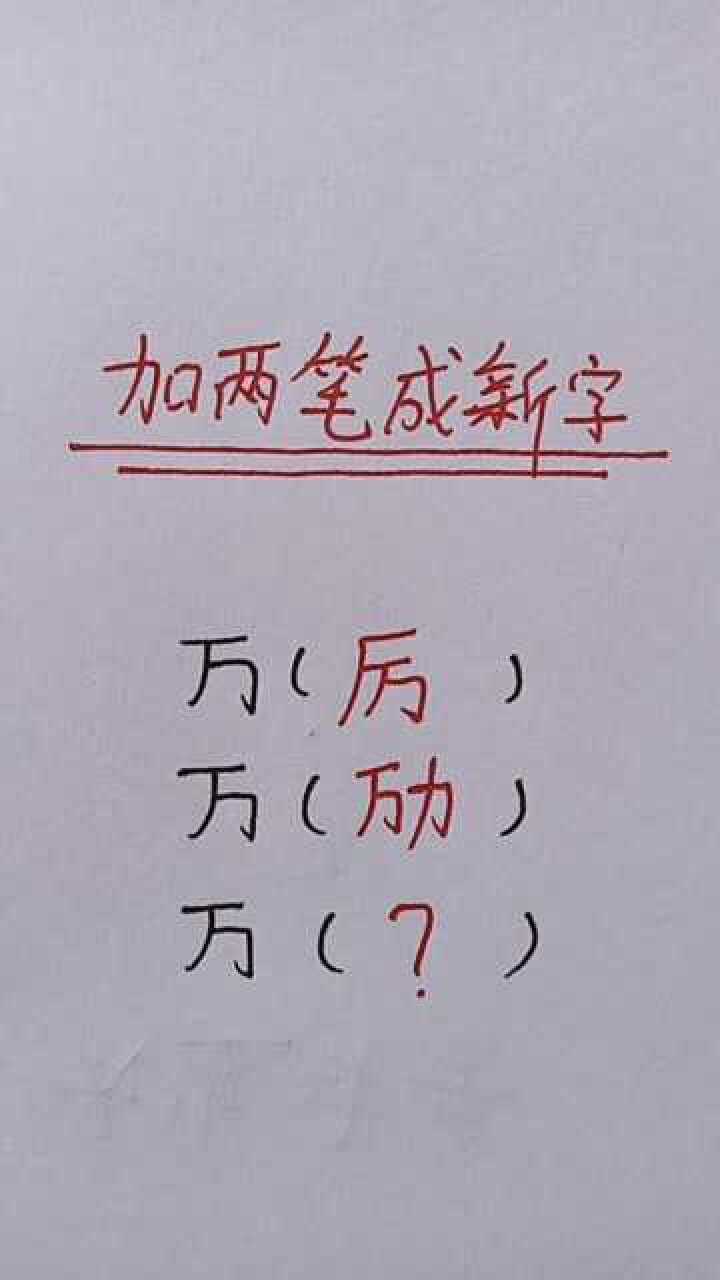 加两笔成新字
万(厉)
万(劢)
万(?)